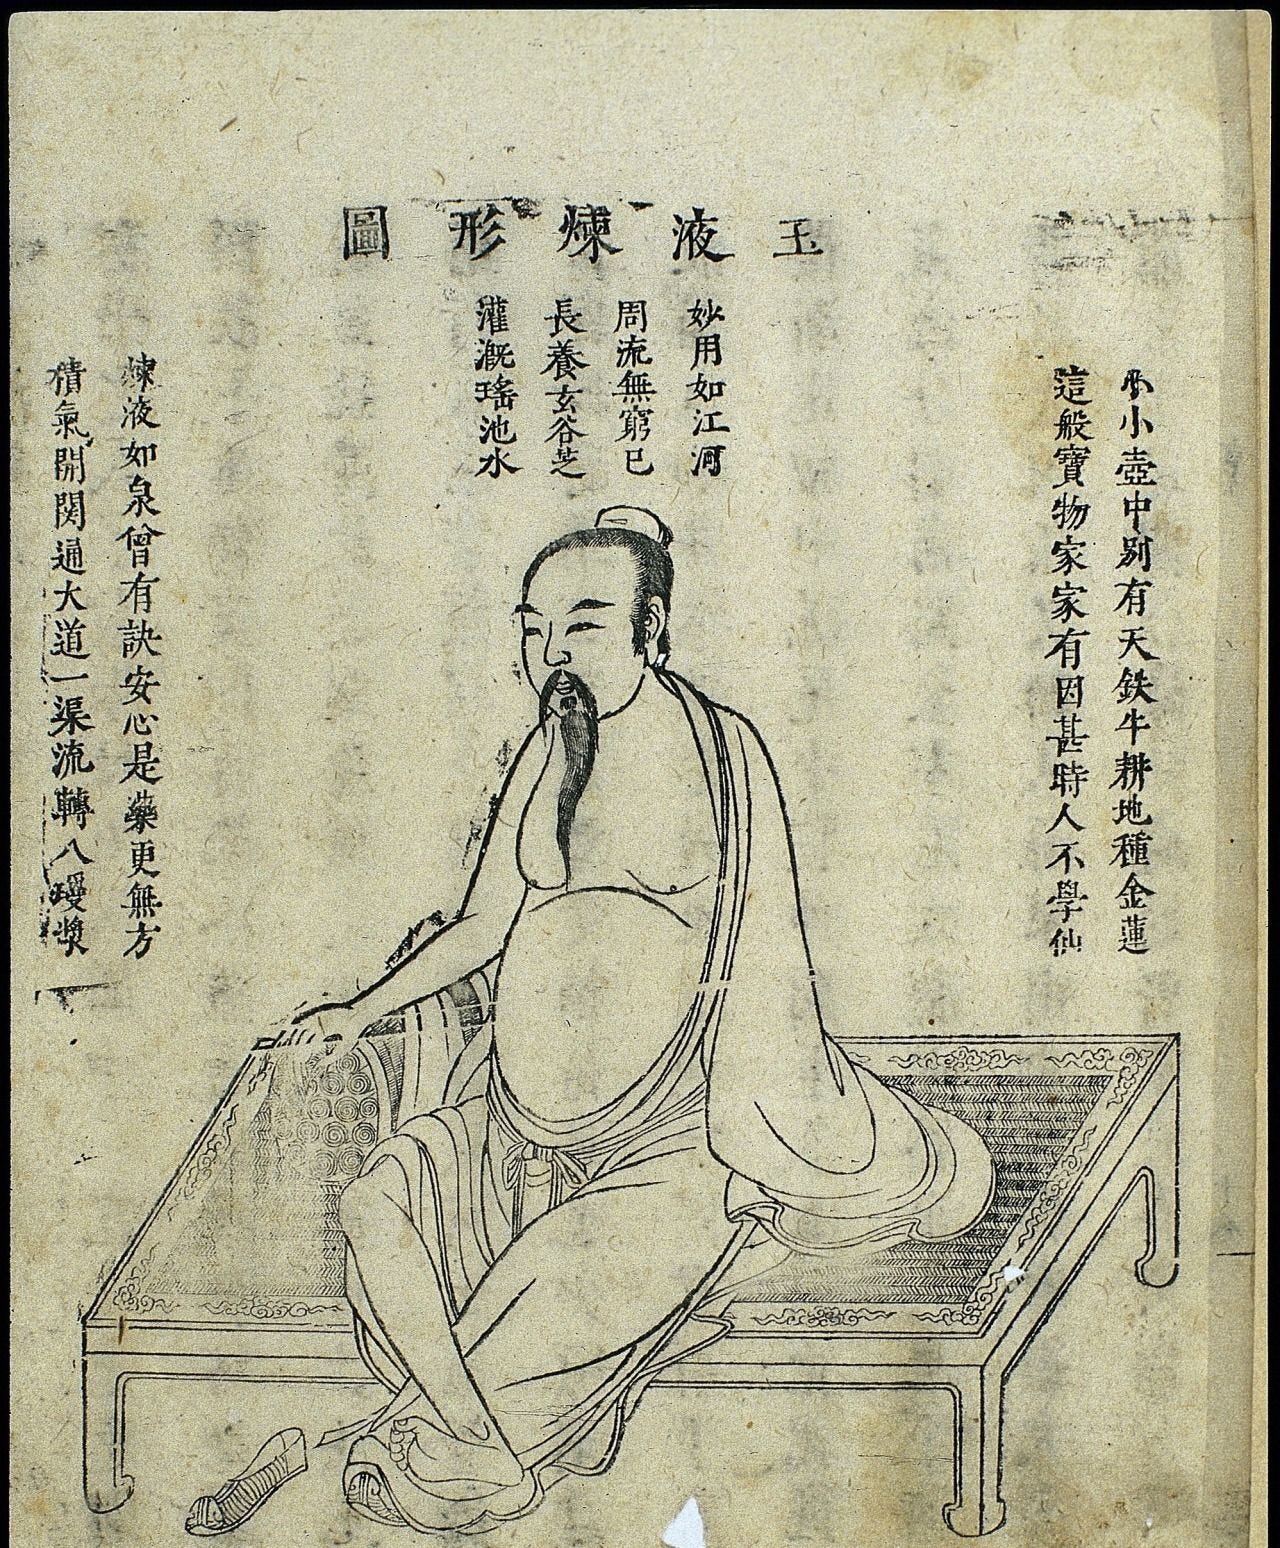 玉液煉形圖
小小壺中別有天鉄牛耕地種金蓮
這般寶物家家有因甚時人不學仙
妙用如江河
周流無窮已
長養玄谷芝
灌漑瑤池水
煉液如泉曾有訣安心是藥更無方
積氣開関通大道一渠流轉八瓊漿